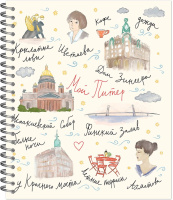 кофе
дожди
Крылатые
львы
Цветаева
Дом Зингера
Мой Питер
Исаакиевский Собор
Белые
ночи
Финский Залив
у Красного моста
Ахматова